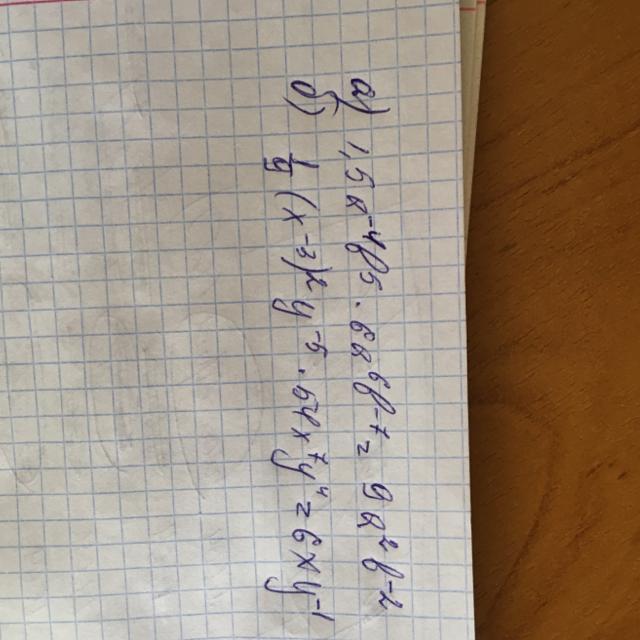 а) 1,5a⁻⁴b⁵ · 6a⁶b⁻⁷ = 9a²b⁻²
б) 1/9 (x⁻³)² y⁻⁵ · 54x⁷y⁴ = 6xy⁻¹